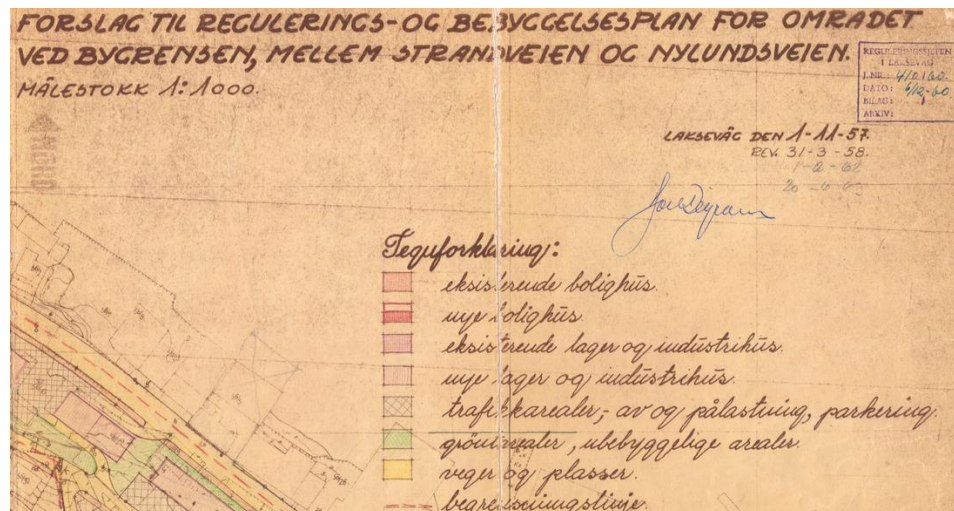 FORSLAG TIL REGULERINGS- OG BEBYGGELSESPLAN FOR OMRADET
VED BYGRENSEN, MELLEM STRANDVEIEN OG NYLUNDSVEIEN.
MÅLESTOKK 1:1000.
REGULERINGSSJEFEN
I LAKSEVÅG
J.NR. 410/60.
DATO: 6/12-60
BILAG:
ARKIV:
NORD
LAKSEVÅG DEN 1-11-57.
REV. 31-3-58.
1-2-62
Tegnforklaring:
eksisterende bolighus.
nye bolighus.
eksisterende lager og industrihus.
nye lager og industrihus.
trafikkarealer,- av og pålastning, parkering.
gröntarealer, ubebyggelige arealer.
veger og plasser.
begrensningslinje.